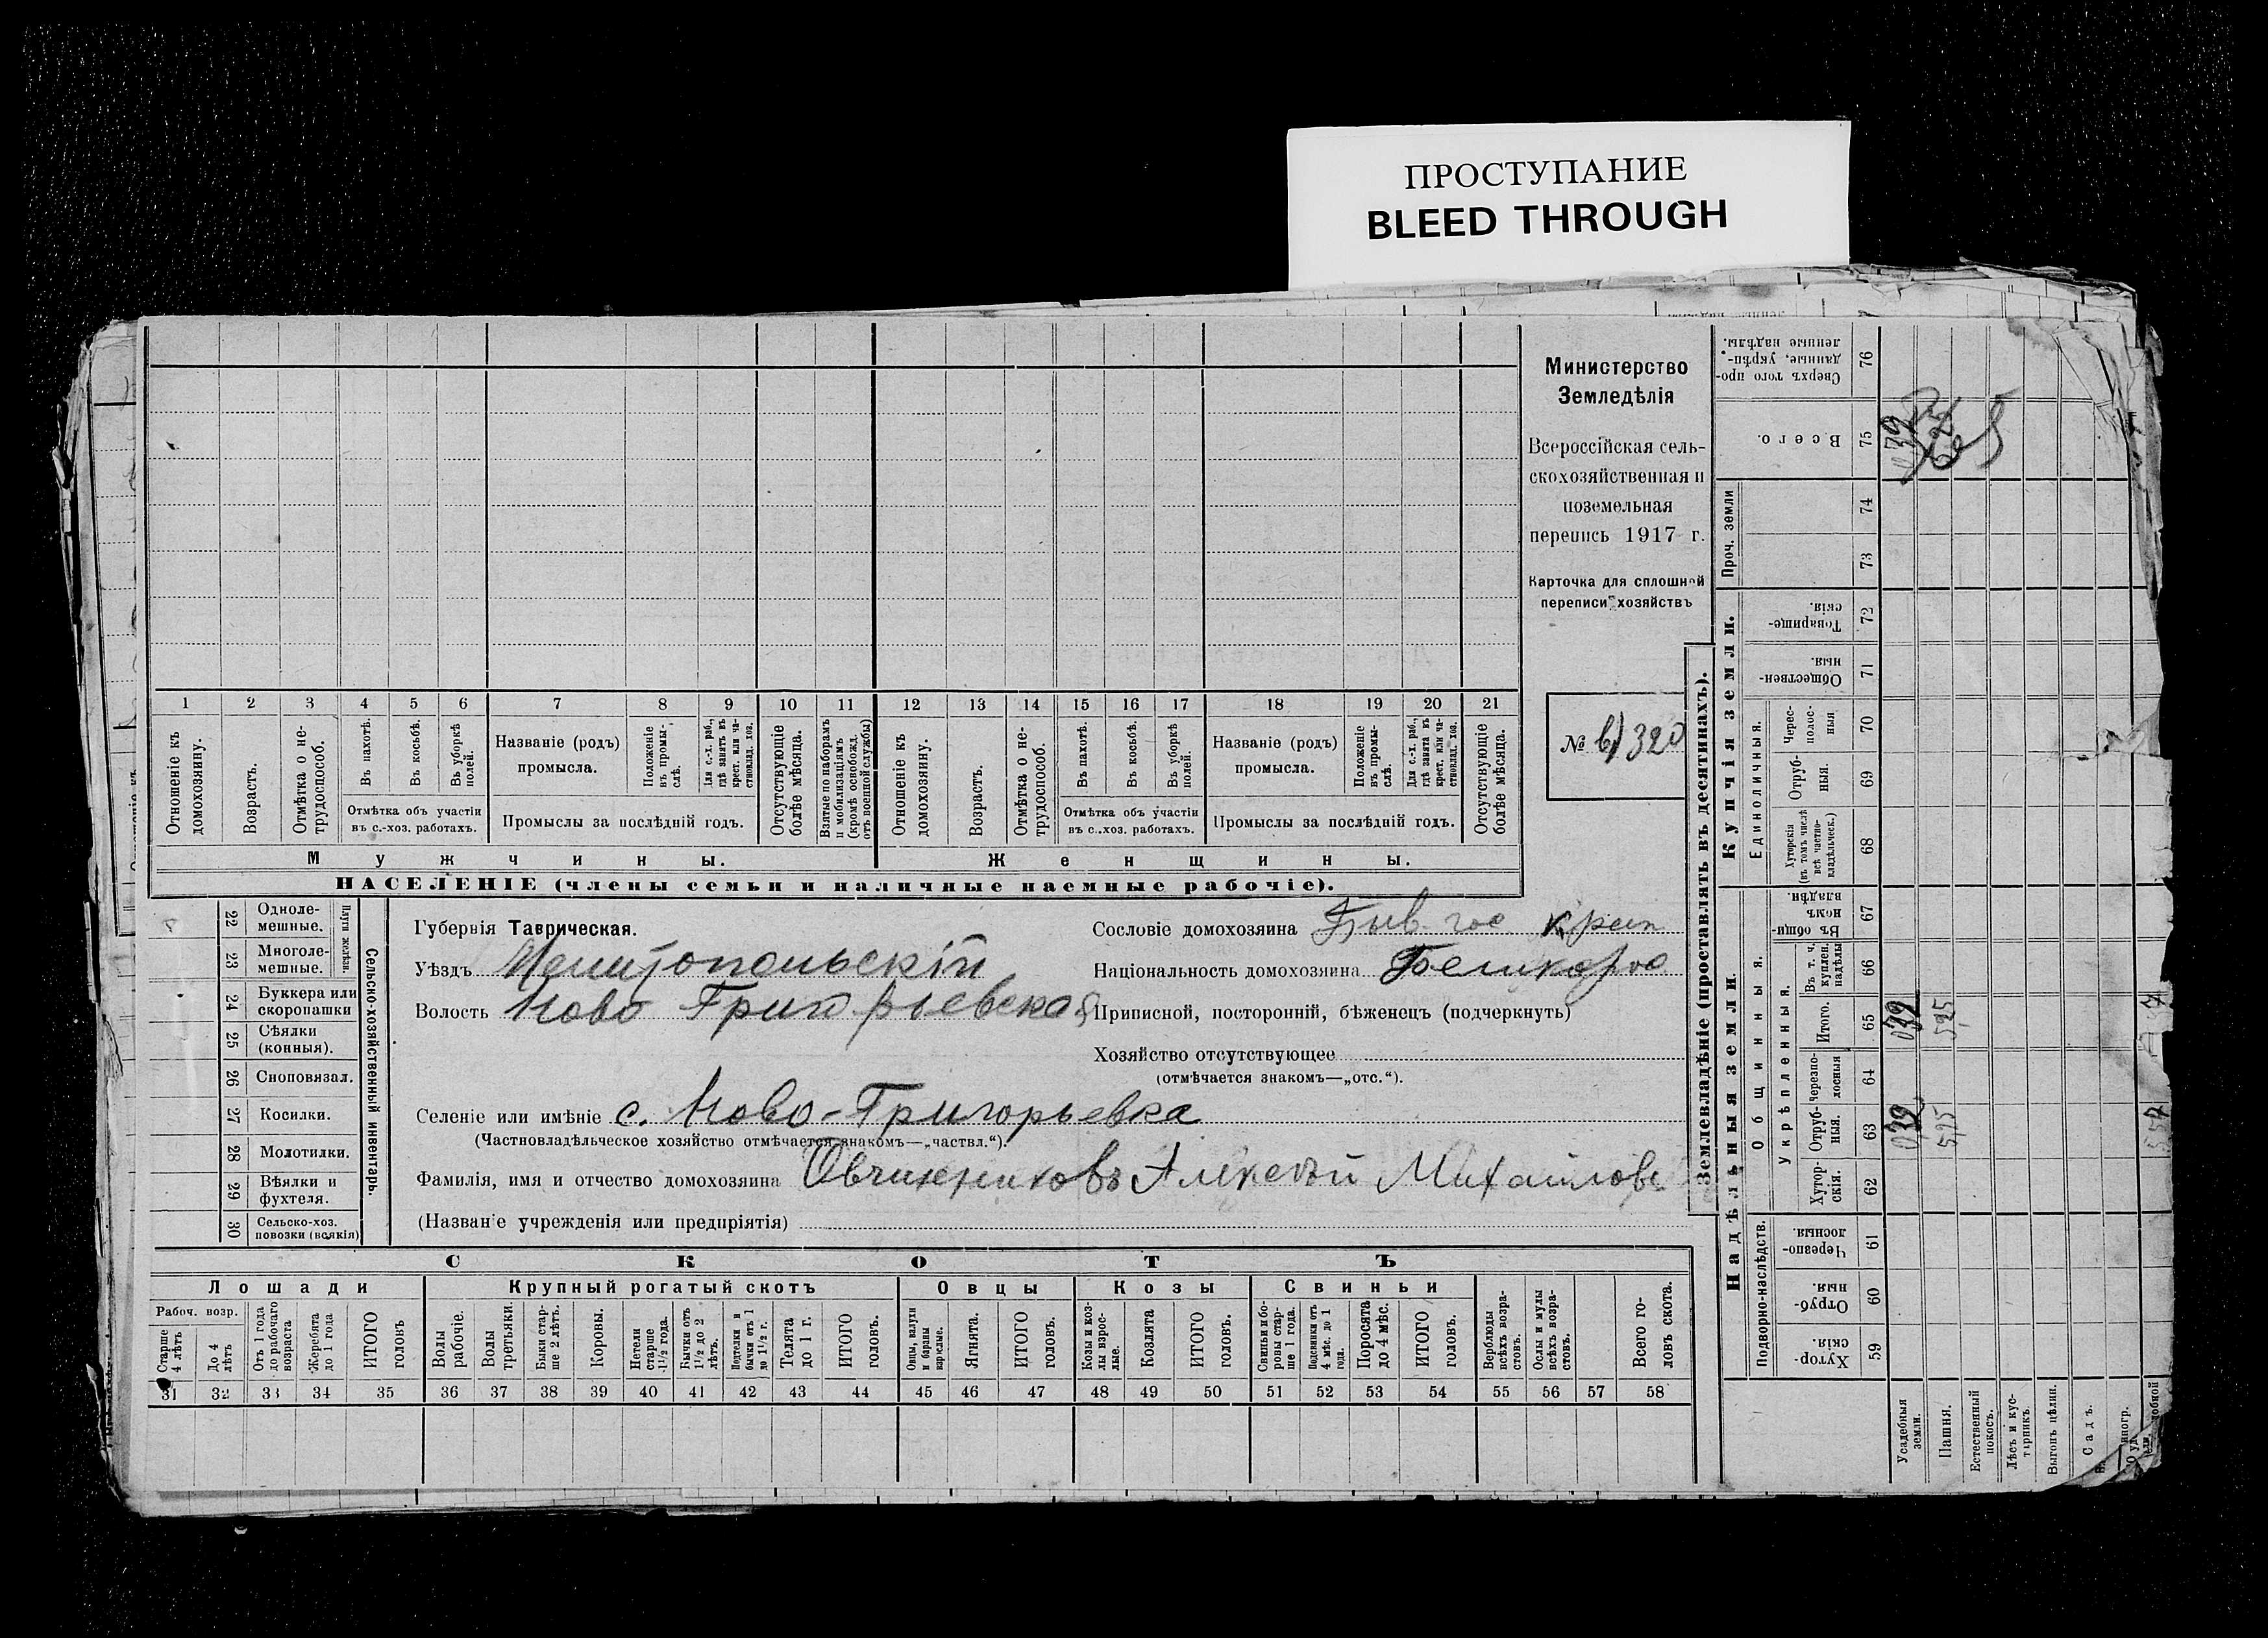 ПРОСТУПАНИЕ
BLEED THROUGH
Министерство
Земледѣлія
Всероссійская сель-
скохозяйственная и
поземельная
перепись 1917 г.
Карточка для сплошной
переписи хозяйствъ
№ 320
1 2 3 4 5 6 7 8 9 10 11 12 13 14 15 16 17 18 19 20 21
Отношеніе къ
домохозяину.
Возрастъ.
Отмѣтка о не-
трудоспособ.
Въ пахотѣ.
Въ косьбѣ.
Въ уборкѣ
полей.
Отмѣтка объ участіи
въ с.-хоз. работахъ.
Названіе (родъ)
промысла.
Положеніе
въ промы-
слѣ.
Для с.-х. раб.,
гдѣ занятъ въ
крест. или ча-
ствовлад. хоз.
Промыслы за послѣдній годъ.
Отсутствующіе
болѣе мѣсяца.
Взятые по наборамъ
и мобилизаціямъ
(кромѣ освобожд.
отъ военной службы)
Отношеніе къ
домохозяину.
Возрастъ.
Отмѣтка о не-
трудоспособ.
Въ пахотѣ.
Въ косьбѣ.
Въ уборкѣ
полей.
Отмѣтка объ участіи
въ с.-хоз. работахъ.
Названіе (родъ)
промысла.
Положеніе
въ промы-
слѣ.
Для с.-х. раб.,
гдѣ занята въ
крест. или ча-
ствовлад. хоз.
Промыслы за послѣдній годъ.
Отсутствующіе
болѣе мѣсяца.
Мужчины. Женщины.
НАСЕЛЕНІЕ (члены семьи и наличные наемные рабочіе).
22 Одноле-
мешные.
23 Многоле-
мешные.
Плуги желѣзн.
24 Буккера или
скоропашки
25 Сѣялки
(конныя).
26 Сноповязал.
27 Косилки.
28 Молотилки.
29 Вѣялки и
фухтеля.
30 Сельско-хоз.
повозки (всякія)
Сельско-хозяйственный инвентарь.
Губернія Таврическая.
Уѣздъ Мелитопольскій
Волость Ново Григорьевская
Селеніе или имѣніе с. Ново-Григорьевка
(Частновладѣльческое хозяйство отмѣчается знакомъ—„частвл.“).
Фамилія, имя и отчество домохозяина Овчинниковъ Алексѣй Михайлов
(Названіе учрежденія или предпріятія)
Сословіе домохозяина Быв. гос крест
Національность домохозяина
Приписной, посторонній, бѣженецъ (подчеркнуть)
Хозяйство отсутствующее
(отмѣчается знакомъ—„отс.“).
СКОТЪ
Лошади Крупный рогатый скотъ Овцы Козы Свиньи
Рабоч. возр.
Старше
4 лѣтъ
До 4
лѣтъ
Отъ 1 года
до рабочаго
возраста
Жеребята
до 1 года
ИТОГО
головъ
Волы
рабочіе.
Волы
третьяки.
Быки стар-
ше 2 лѣтъ.
Коровы.
Нетели
старше
1½ года.
Бычки отъ
1½ до 2
лѣтъ.
Подтелки и
бычки отъ 1
до 1½ г.
Телята
до 1 г.
ИТОГО
головъ.
Овцы, валухи
и бараны
взрослые.
Ягнята.
ИТОГО
головъ.
Козы и коз-
лы взрос-
лые.
Козлята
ИТОГО
головъ.
Свиньи и бо-
ровы стар-
ше 1 года.
Подсвинки отъ
4 мѣс. до 1
года.
Поросята
до 4 мѣс.
ИТОГО
головъ.
Верблюды
всѣхъ возра-
стовъ.
Ослы и мулы
всѣхъ возра-
стовъ.
Всего го-
ловъ скота.
31 32 33 34 35 36 37 38 39 40 41 42 43 44 45 46 47 48 49 50 51 52 53 54 55 56 57 58
Землевладѣніе (проставлять въ десятинахъ).
Надѣльныя земли.
Купчія земли.
Проч. земли
Подворно-наслѣдств.
Общинныя.
Укрѣпленныя.
Единоличныя.
Хутор-
скія. 59
Отруб-
ныя. 60
Черезпо-
лосныя 61
Хутор-
скія. 62
Отруб-
ныя. 63
Черезпо-
лосныя 64
Итого. 65
Въ т. ч.
куплен.
надѣлы 66
Въ общи-
номъ
владѣн. 67
Хуторскія
(въ томъ числѣ
всѣ частно-
владѣльческ.) 68
Отруб-
ныя. 69
Черес-
полос-
ныя 70
Обществен-
ныя. 71
Товарище-
скія. 72
73
74
Всего. 75
Сверхъ того про-
данные, укрѣп-
ленные надѣлы. 76
Усадебныя
земли.
Пашня.
Естественный
покосъ.
Лѣсъ и кус-
тарникъ.
Выгонъ цѣлин.
Садъ.
039 039 039
525 525